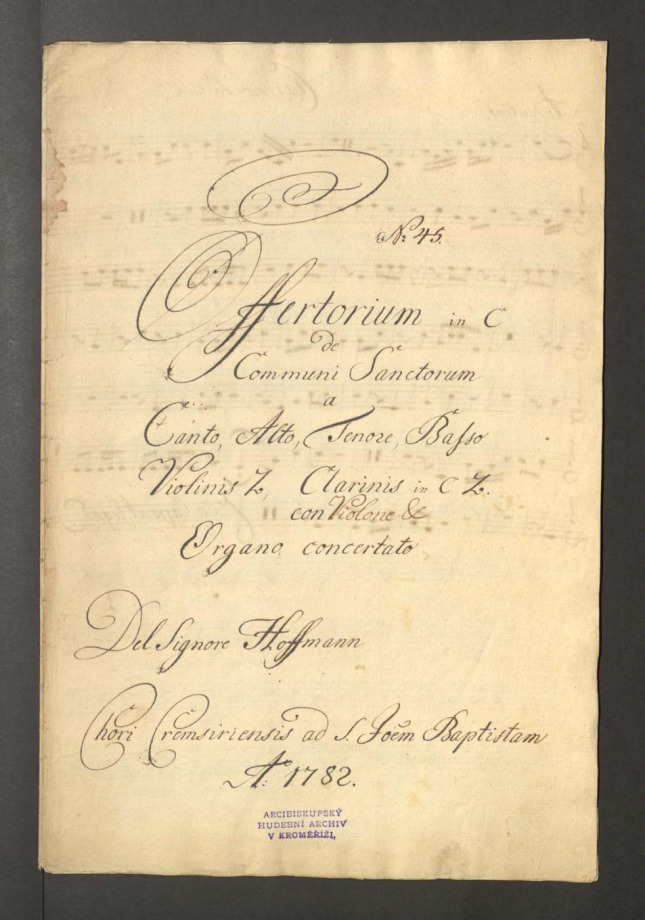 No: 45.
Offertorium in C
de
Communi Sanctorum
a
Canto, Alto, Tenore, Basso
Violinis 2, Clarinis in C 2.
con Violone &
Organo concertato
Del Signore Hoffmann
Chori Cremsiriensis ad S. Joẽm Baptistam
Ao: 1782.
ARCIBISKUPSKÝ
HUDEBNÍ ARCHIV
V KROMĚŘÍŽI,